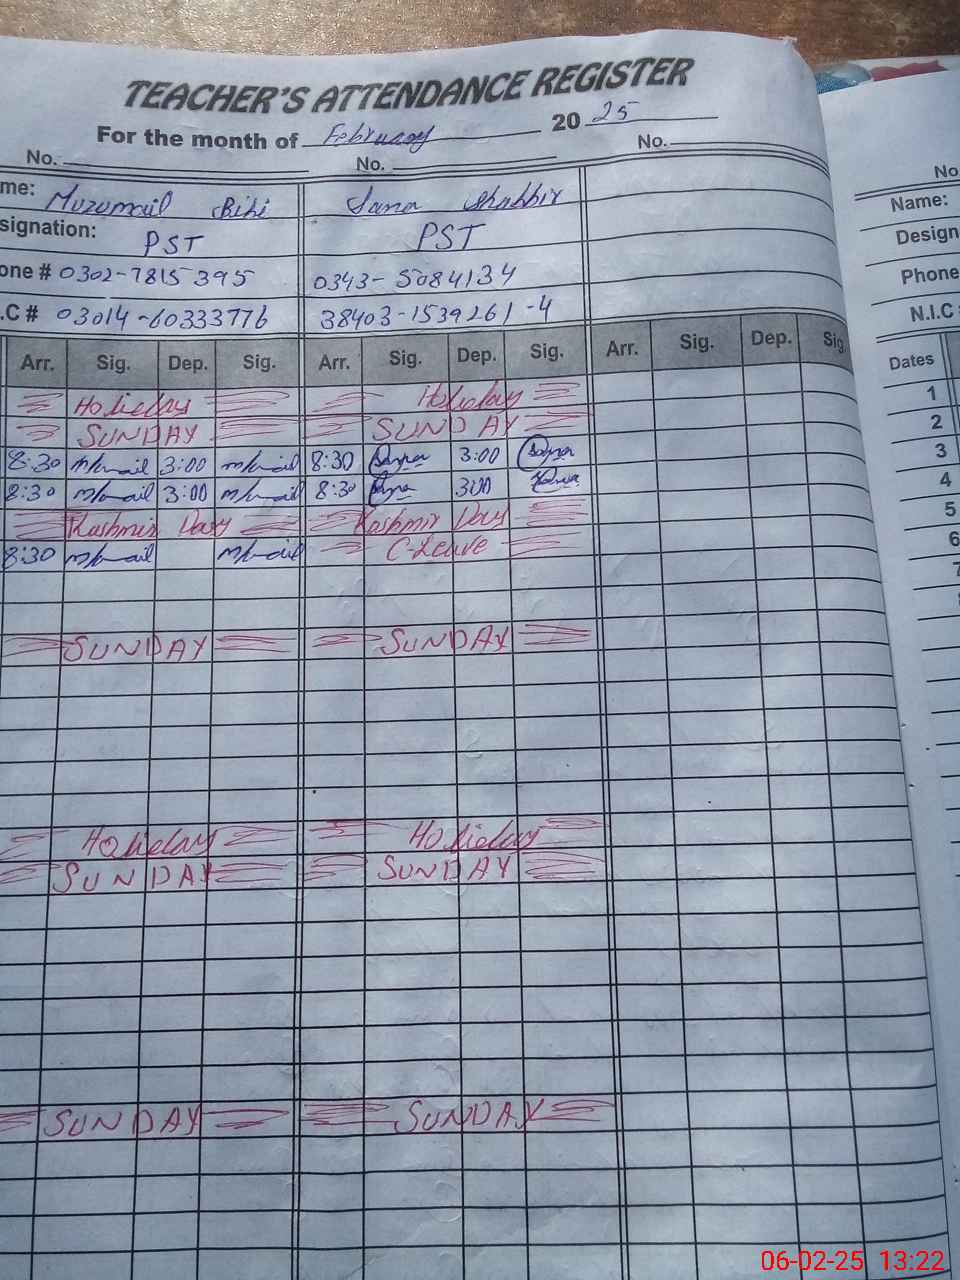 TEACHER'S ATTENDANCE REGISTER
For the month of February 20 25
No. No. No.
me: Muzumail Bibi Sana Shabbir
signation: PST PST
one # 0302-7815395 0343-5084134
.C # 03014-60333776 38403-1539261-4
Arr. Sig. Dep. Sig. Arr. Sig. Dep. Sig. Arr. Sig. Dep. Sig.
Holieday Holieday
SUNDAY SUNDAY
8:30 3:00 8:30 3:00
8:30 3:00 8:30 3:00
Kashmir Day Kashmir Day
8:30 C-Leave
SUNDAY SUNDAY
Holieday Holieday
SUNDAY SUNDAY
SUNDAY SUNDAY
No
Name:
Design
Phone
N.I.C
Dates
1
2
3
4
5
6
7
06-02-25 13:22